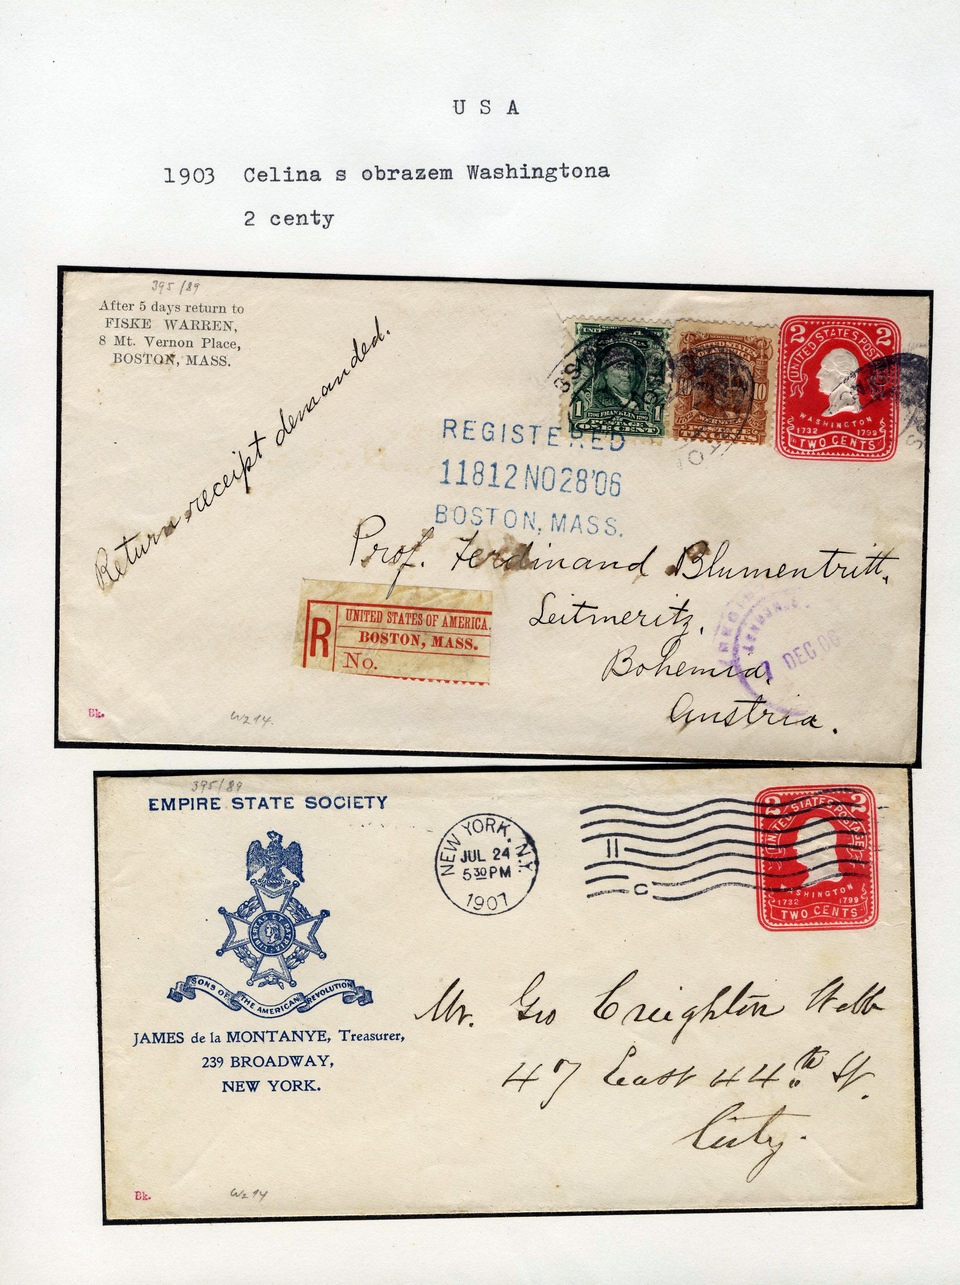 USA
1903 Celina s obrazem Washingtona
2 centy
395/89
After 5 days return to
FISKE WARREN,
8 Mt. Vernon Place,
BOSTON, MASS.
Return receipt demanded.
1 1706 FRANKLIN 1790 1
POSTAGE
ONE CENT
10
2 2
UNITED STATES POSTAGE
WASHINGTON
1732 1799
TWO CENTS
REGISTERED
11812 NO28'06
BOSTON, MASS.
Prof. Ferdinand Blumentritt,
Leitmeritz,
Bohemia,
Austria.
R
UNITED STATES OF AMERICA.
BOSTON, MASS.
No.
7 DEC 06
Bk.
Wz 14.
395/89
EMPIRE STATE SOCIETY
SONS OF THE AMERICAN REVOLUTION
JAMES de la MONTANYE, Treasurer,
239 BROADWAY,
NEW YORK.
NEW YORK, N.Y.
JUL 24
5 30 PM
1907
11
C
2 2
UNITED STATES POSTAGE
WASHINGTON
1732 1799
TWO CENTS
Mr. Geo Creighton Webb
47 East 44th St.
City.
Bk.
Wz 14